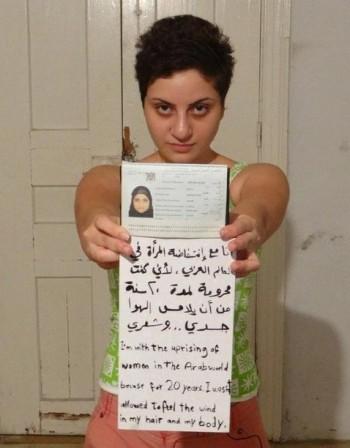 أنا مع إنتفاضة المرأة في
العالم العربي، لأني كنت
محرومة لمدة ٢٠ سنة
من أن يلامس الهوا
جسدي .. وشعري
I'm with the uprising of
women in the Arab world
because for 20 years I wasn't
allowed To feel the wind
in my hair and my body.